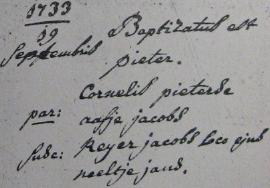 1733
19 Baptizatus est
Septembris pieter.
Cornelis pieterse
par: aafje jacobs
Susc: Reyer jacobs loco ejus
neeltje jans.